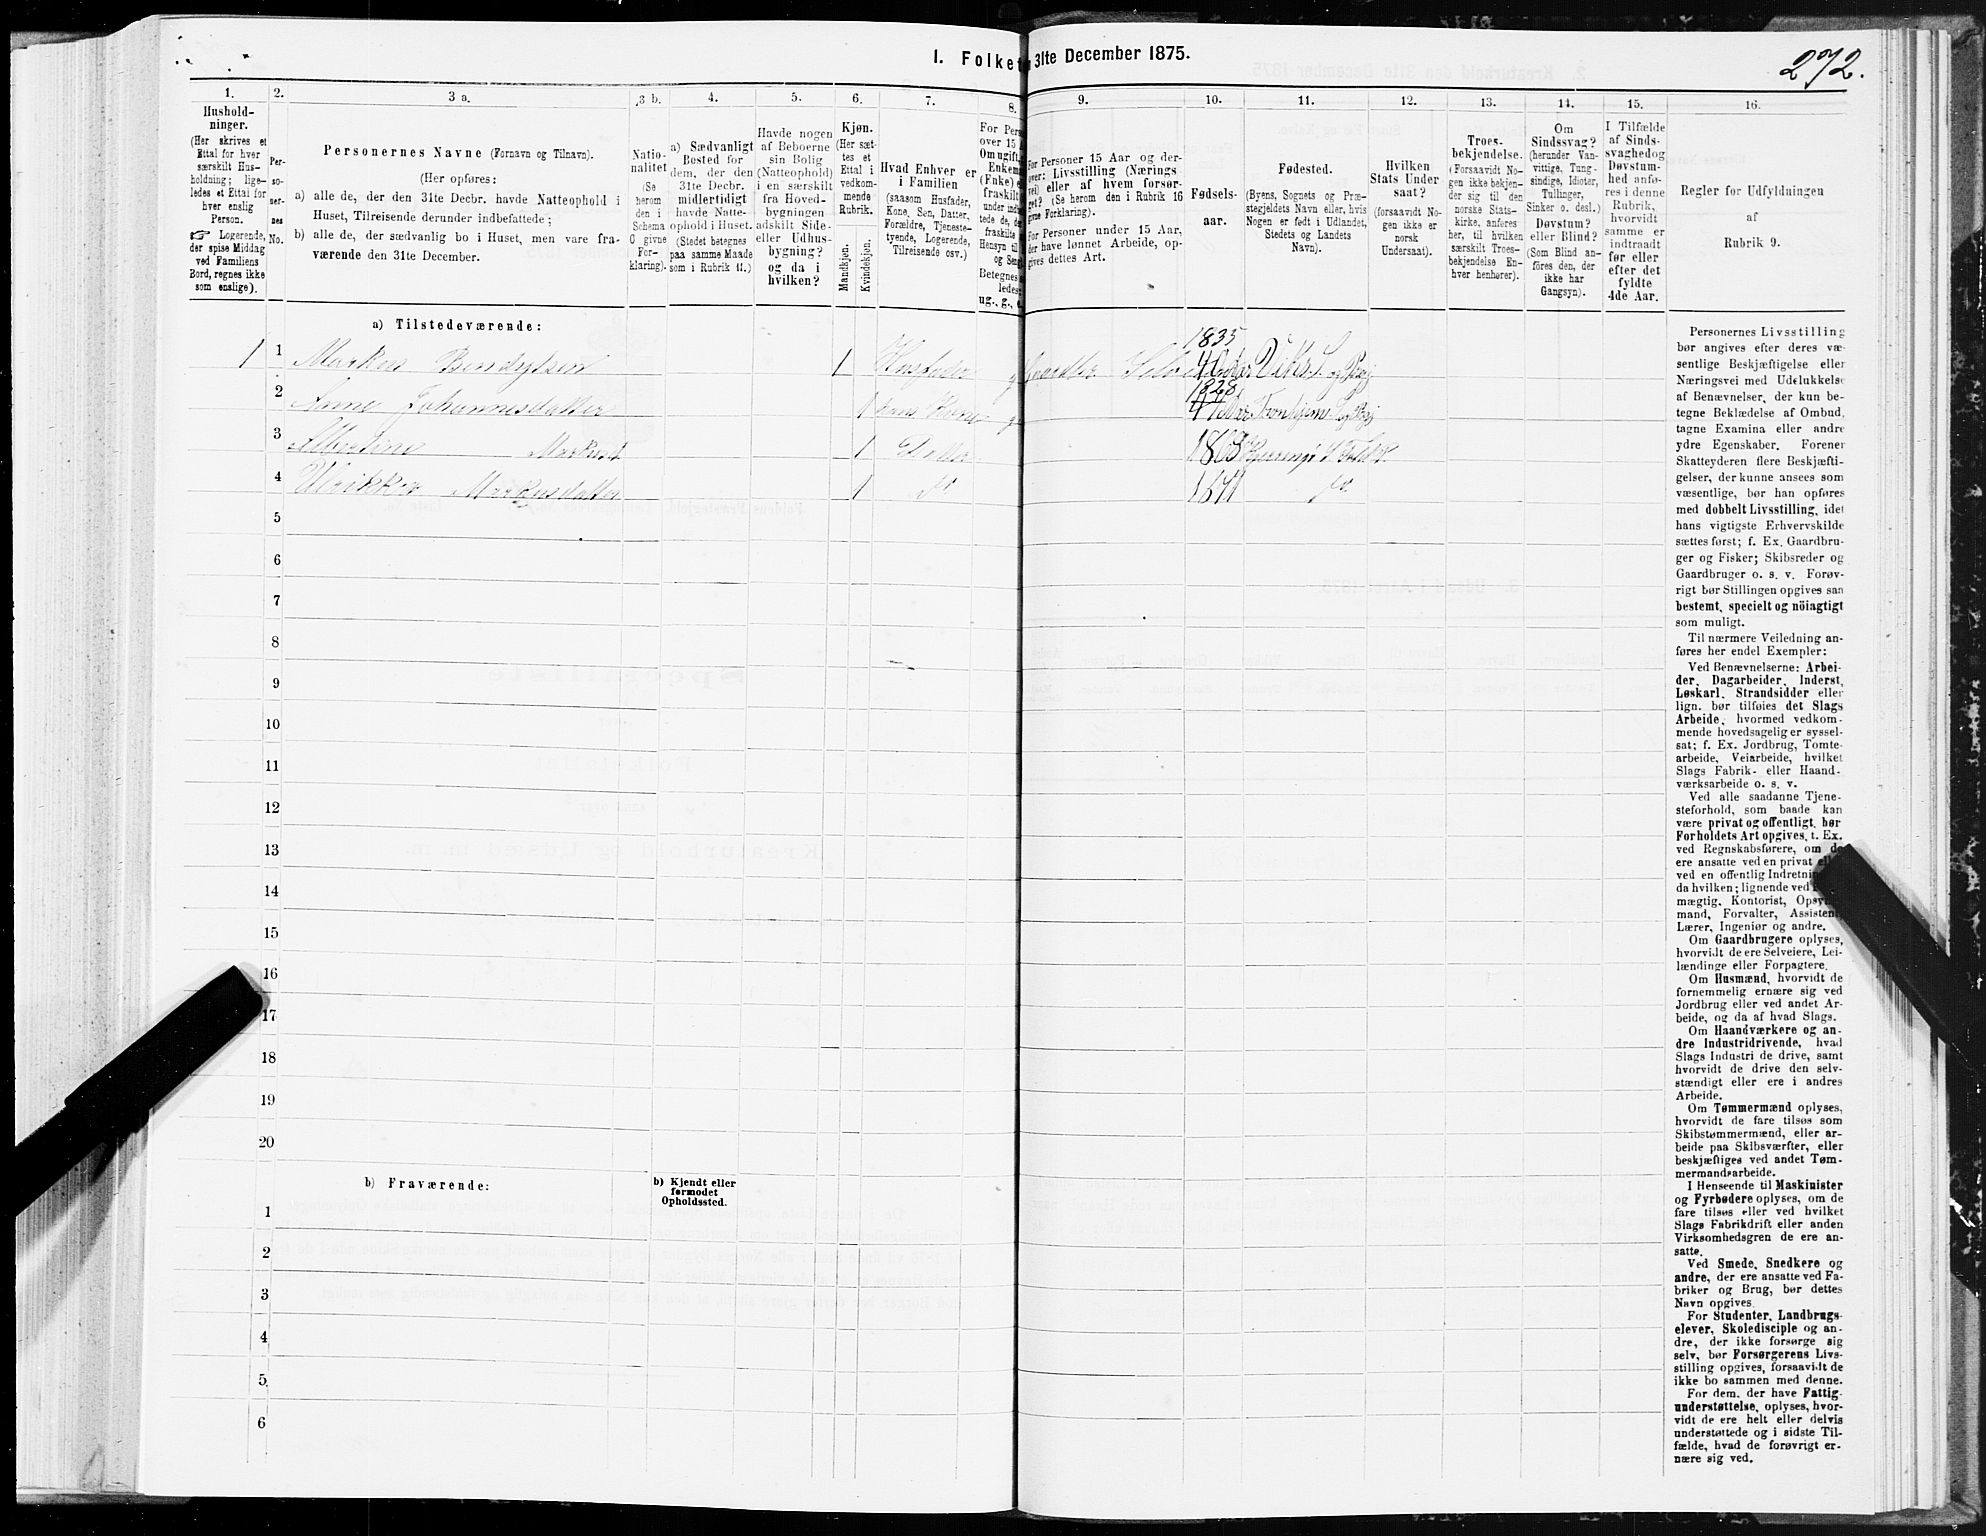 272.
I. Folket
31te December 1875.
1. 2. 3 a. 3 b. 4. 5. 6. 7. 8. 9. 10. 11. 12. 13. 14. 15. 16.
Hushold-
ninger.
(Her skrives et
Ettal for hver
særskilt Hus-
holdning; lige-
ledes et Ettal for
hver enslig
Person.
☞ Logerende,
der spise Middag
ved Familiens
Bord, regnes ikke
som enslige).
Per-
so-
ner-
nes
No.
Personernes Navne (Fornavn og Tilnavn).
(Her opføres:
a) alle de, der den 31te Decbr. havde Natteophold i
Huset, Tilreisende derunder indbefattede;
b) alle de, der sædvanlig bo i Huset, men vare fra-
værende den 31te December.
Natio-
nalitet
(Se
herom
den i
Schema
C givne
For-
klaring).
a) Sædvanligt
Bosted for
dem, der den
31te Decbr.
midlertidigt
havde Natte-
ophold i Huset.
(Stedet betegnes
paa samme Maade
som i Rubrik 11.)
Havde nogen
af Beboerne
sin Bolig
(Natteophold)
i en særskilt
fra Hoved-
bygningen
adskilt Side-
eller Udhus-
bygning?
og da i
hvilken?
Kjøn.
(Her sæt-
tes et
Ettal i
vedkom-
mende
Rubrik.
Mandkjøn.
Kvindekjøn.
Hvad Enhver er
i Familien
(saasom Husfader,
Kone, Søn, Datter,
Forældre, Tjeneste-
tyende, Logerende,
Tilreisende osv.)
For Pers
over 15 A
Om ugift,
Enkem
(Enke) e
fraskilt
under ind
tede de, d
fraskilte
Hensyn til
og Seng
Betegnes
ledes:
ug., g., e.
For Personer 15 Aar og der-
over: Livsstilling (Nærings
vei) eller af hvem forsør-
get? (Se herom den i Rubrik 16
givne Forklaring).
For Personer under 15 Aar,
der have lønnet Arbeide, op-
gives dettes Art.
Fødsels-
aar.
Fødested.
(Byens, Sognets og Præ-
stegjeldets Navn eller, hvis
Nogen er født i Udlandet,
Stedets og Landets
Navn).
Hvilken
Stats Under
saat?
(forsaavidt No-
gen ikke er
norsk
Undersaat).
Troes-
bekjendelse.
(Forsaavidt No-
gen ikke bekjen-
der sig til den
norske Stats-
kirke, anføres
her, til hvilken
særskilt Troes-
bekjendelse En-
hver henhører).
Om
Sindssvag?
(herunder Van-
vittige, Tung-
sindige, Idioter,
Tullinger,
Sinker o. desl.)
Døvstum?
eller Blind?
(Som Blind an-
føres den, der
ikke har
Gangsyn).
I Tilfælde
af Sinds-
svaghedog
Døvstum-
hed anfø-
res i denne
Rubrik,
hvorvidt
samme er
indtraadt
før eller
efter det
fyldte
4de Aar.
Regler før Udfyldningen
af
Rubrik 9.
a) Tilstedeværende:
1835
1 1 Markus Bendigtsen 1 Husfader g
1828
2 Anne Johannesdatter 1 hans Kone g
3 Albertine Markusd 1 Datter
4 Ulrikke Markusdatter 1 do 1871 do.
5
6
7
8
9
10
11
12
13
14
15
16
17
18
19
20
b) Fraværende:
b) Kjendt eller
formodet
Opholdssted.
1
2
3
4
5
6
Personernes Livsstilling
bør angives efter deres væ-
sentlige Beskjæftigelse eller
Næringsvei med Udelukkelse
af Benævnelser, der kun be-
tegne Beklædelse af Ombud,
tagne Examina eller andre
ydre Egenskaber. Forener
Skatteyderen flere Beskjæfti-
gelser, der kunne ansees som
væsentlige, bør han opføres
med dobbelt Livsstilling, idet
hans vigtigste Erhvervskilde
sættes først; f. Ex. Gaardbru-
ger og Fisker; Skibsreder og
Gaardbruger o. s. v. Forøv-
rigt bør Stillingen opgives saa
bestemt, specielt og nöiagtigt
som muligt.
Til nærmere Veiledning an-
føres her endel Exempler:
Ved Benævnelserne: Arbei-
der, Dagarbeider, Inderst,
Løskarl, Strandsidder eller
lign. bør tilføies det Slags
Arbeide, hvormed vedkom-
mende hovedsagelig er syssel-
sat; f. Ex. Jordbrug, Tomte-
arbeide, Veiarbeide, hvilket
Slags Fabrik- eller Haand-
værksarbeide o. s. v.
Ved alle saadanne Tjene-
steforhold, som baade kan
være privat og offentligt, bør
Forholdets Art opgives, t. Ex.
ved Regnskabsførere, om de
ere ansatte ved en privat
ved en offentlig Indretnin
da hvilken; lignende ved
mægtig, Kontorist, Opsy
mand, Forvalter, Assistent,
Lærer, Ingeniør og andre.
Om Gaardbrugere oplyses,
hvorvidt de ere Selveiere, Lei-
lændinge eller Forpagtere.
Om Husmænd, hvorvidt de
fornemmelig ernære sig ved
Jordbrug eller ved andet Ar-
beide, og da af hvad Slags.
Om Haandværkere og an-
dre Industridrivende, hvad
Slags Industri de drive, samt
hvorvidt de drive den selv-
stændigt eller ere i andres
Arbeide.
Om Tømmermænd oplyses,
hvorvidt de fare tilsøs som
Skibstømmermænd, eller ar-
beide paa Skibsværfter, eller
beskjæftiges ved andet Tøm-
mermandsarbeide.
I Henseende til Maskinister
og Fyrbødere oplyses, om de
fare tilsøs eller ved hvilket
Slags Fabrikdrift eller anden
Virksomhedsgren de ere an-
satte.
Ved Smede, Snedkere og
andre, der ere ansatte ved Fa-
briker og Brug, bør dettes
Navn opgives.
For Studenter, Landbrugs-
elever, Skoledisciple og an-
dre, der ikke forsørge sig
selv, bør Forsørgerens Livs-
stilling opgives, forsaavidt de
ikke bo sammen med denne.
For dem, der have Fattig-
understøttelse, oplyses, hvor-
vidt de ere helt eller delvis
understøttede og i sidste Til-
fælde, hvad de forøvrigt er-
nære sig ved.